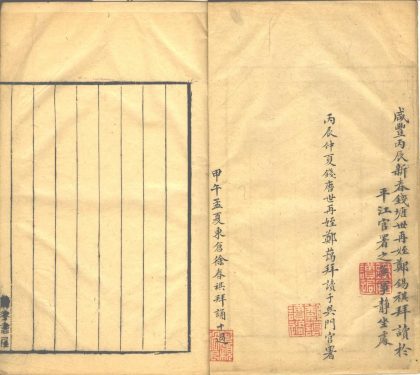 咸豐丙辰新春錢塘世再姪鄭錫祺拜讀於
平江官署之靜坐處
丙辰仲夏錢唐世再姪鄭藹拜讀于吳門官署
甲午孟夏東倉徐春祺拜誦十過